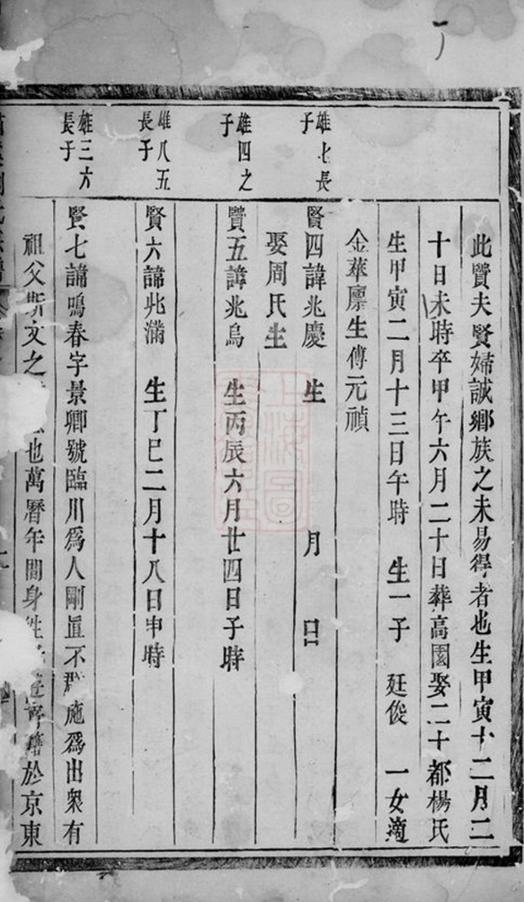 此賢夫賢婦誠鄉族之未易得者也生甲寅十二月二
十日未時卒甲午六月二十日葬高園娶二十都楊氏
生甲寅二月十三日午時 生一子 廷俊 一女適
金華廪生傅元禎
雄七長子
賢四諱兆慶 生 月 日
娶周氏生
雄四之子
賢五諱兆烏 生丙辰六月廿四日子時
雄八五長子
賢六諱兆滿 生丁巳二月十八日申時
雄三六長子
賢七諱鳴春字景卿號臨川為人剛直不 施為出衆有
祖父斯文之 也萬曆年間身 於京東